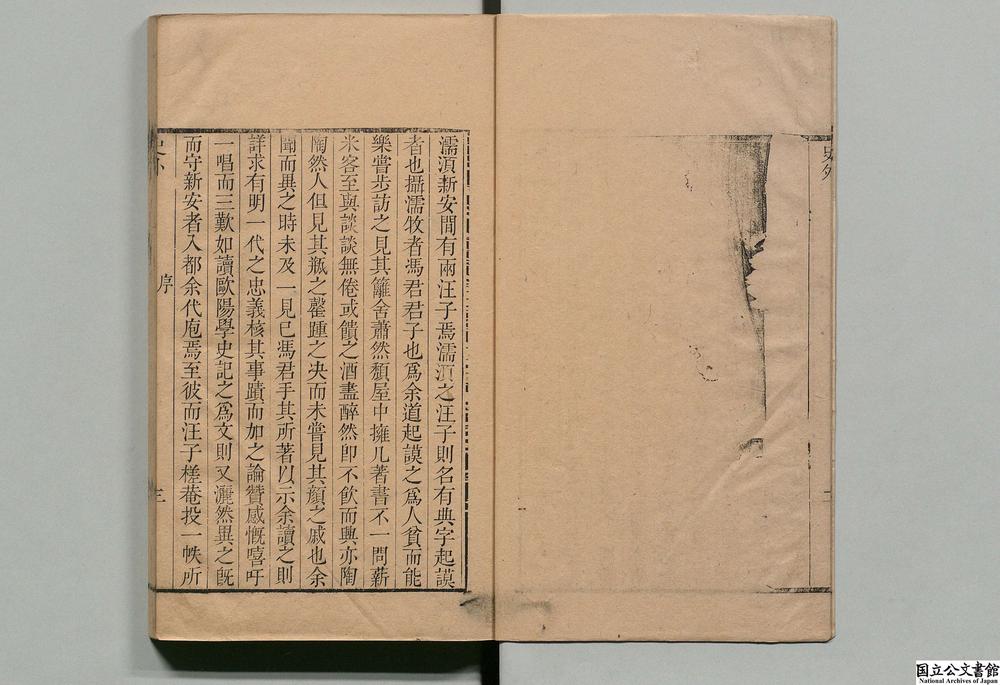 濡湏新安間有兩汪子焉濡湏之汪子則名有典字起謨
者也攝濡牧者馮君君子也爲余道起謨之爲人貧而能
樂嘗步訪之見其籬舍蕭然頽屋中擁几著書不一問薪
米客至與談談無倦或饋之酒盡醉然卽不飲而興亦陶
陶然人但見其瓶之罄踵之决而未嘗見其顏之戚也余
聞而異之時未及一見已馮君手其所著以示余讀之則
詳求有明一代之忠義核其事蹟而加之論贊感慨嘻吁
一唱而三歎如讀歐陽學史記之爲文則又灑然異之旣
而守新安者入都余代庖焉至彼而汪子槎菴投一帙所
序
三
国立公文書館
National Archives of Japan